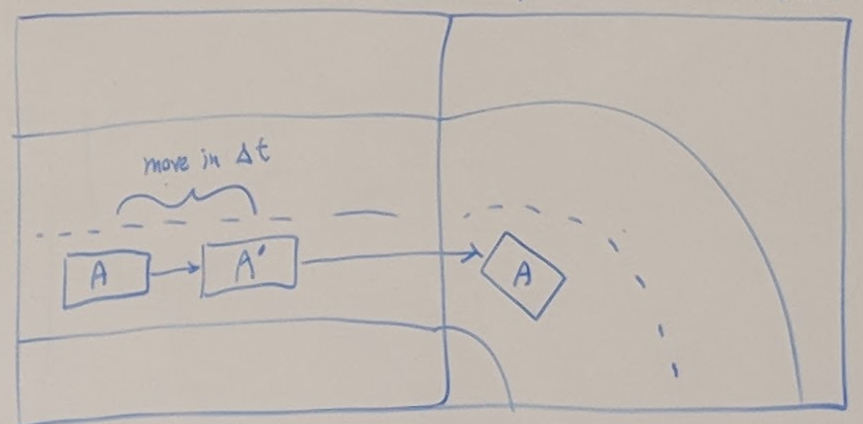 move in Δt
A
A'
A